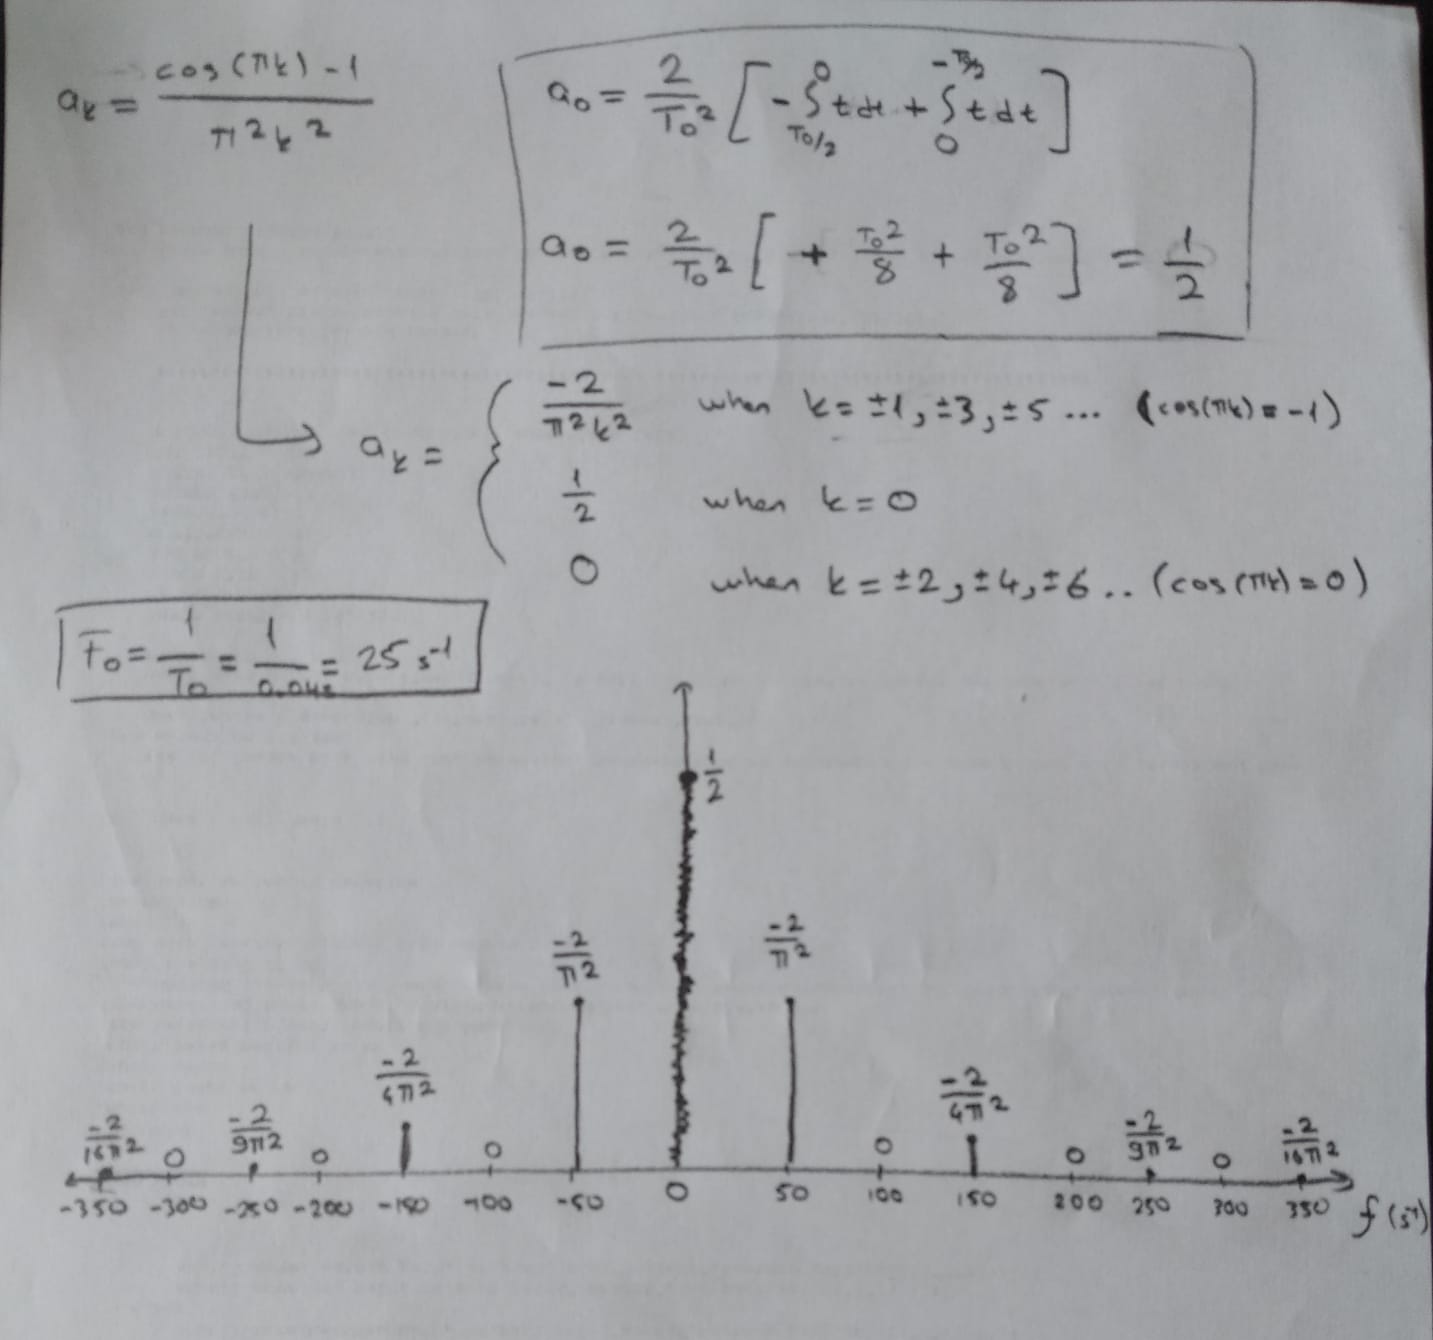 aₖ = (cos(πk) - 1) / (π²k²)
a₀ = 2/T₀² [ -∫_{T₀/2}^{0} t dt + ∫_{0}^{-T₀/2} t dt ]
a₀ = 2/T₀² [ + T₀²/8 + T₀²/8 ] = 1/2
aₖ = { -2/(π²k²) when k = ±1, ±3, ±5 ... (cos(πk) = -1)
1/2 when k = 0
0 when k = ±2, ±4, ±6 .. (cos(πk) = 0)
F₀ = 1/T₀ = 1/0.04s = 25 s⁻¹
1/2
-2/π² -2/π²
-2/4π² -2/4π²
-2/16π² 0 -2/9π² 0 0 0 0 -2/9π² 0 -2/16π²
-350 -300 -250 -200 -150 -100 -50 0 50 100 150 200 250 300 350 f (s⁻¹)